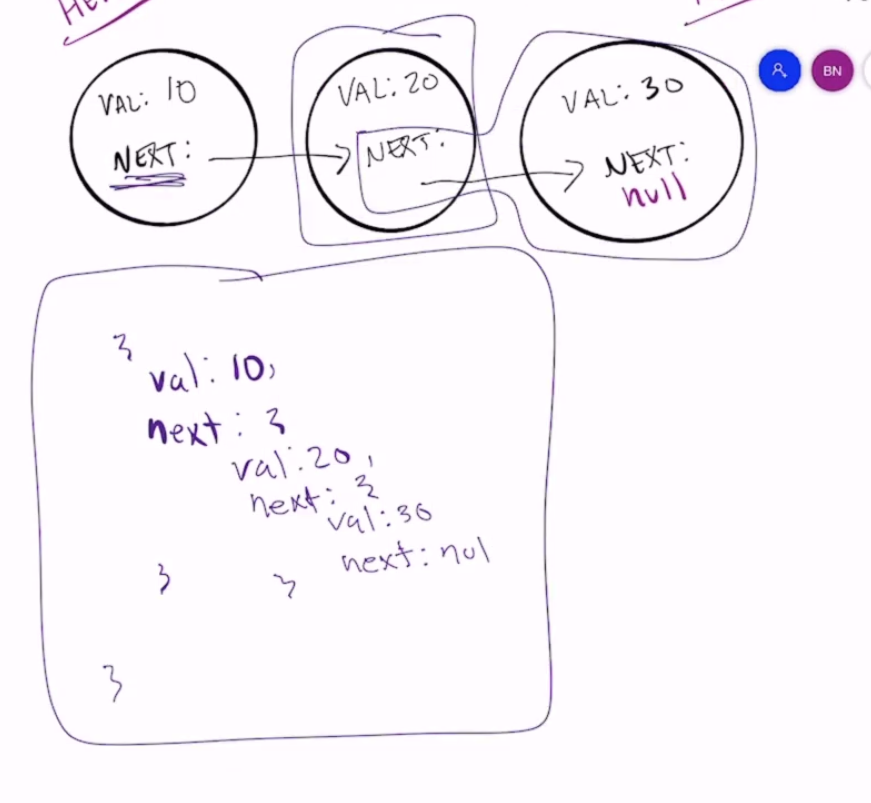 VAL: 10
NEXT:
VAL: 20
NEXT:
VAL: 30
NEXT:
null
BN
{
val: 10,
next: {
val: 20,
next: {
val: 30
next: nul
} }
}